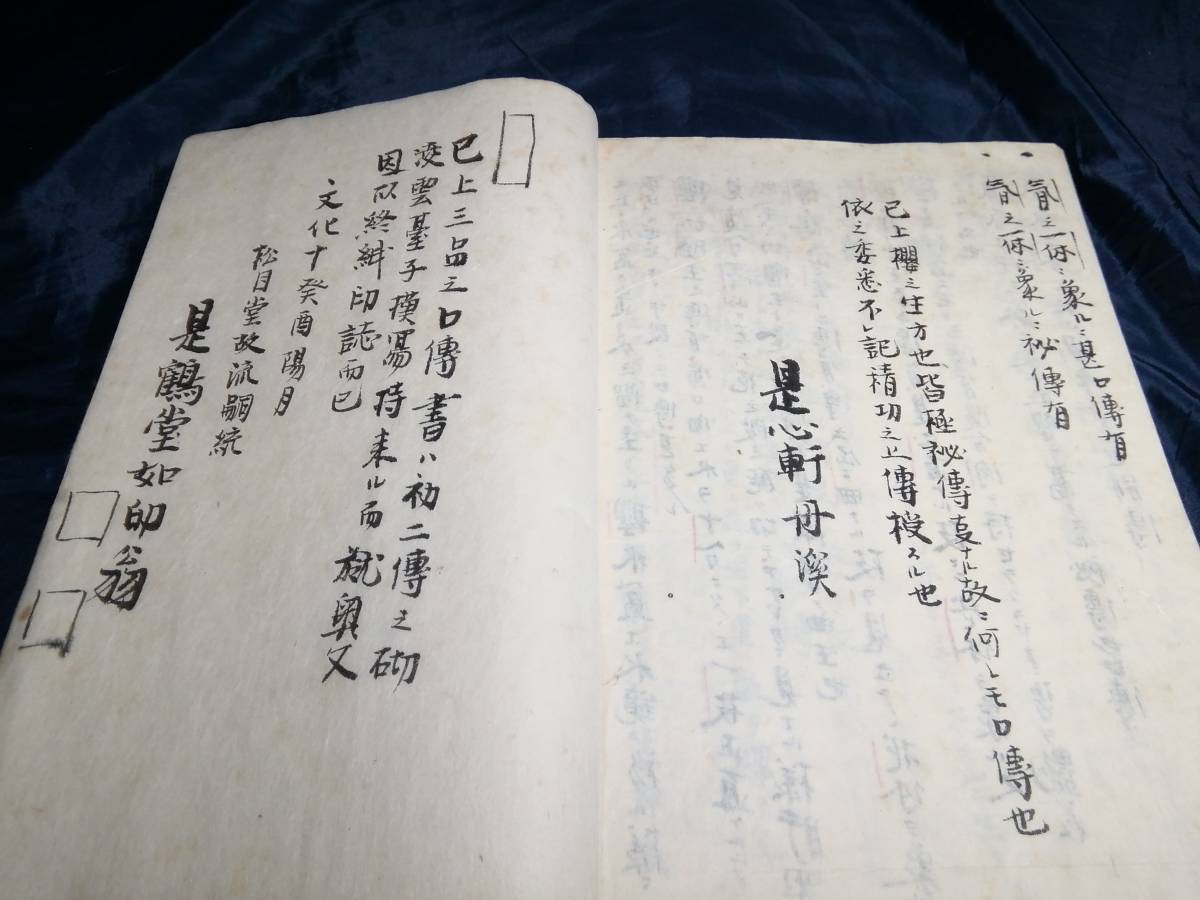 之一体ニ象ルニ甚口傳有
之一体ニ象ルニ祕傳有
已上櫻之生方也皆極祕傳夏ナル故ニ何レモ口傳也
依之委悉不レ記精功之上傳授スル也
是心軒丹溪
已上三品之口傳書ハ初二傳之砌
凌雲臺子模寫持来ル而就奥文
因以終繕印誌而已
文化十癸酉陽月
松月堂故流嗣統
是鶴堂如印翁